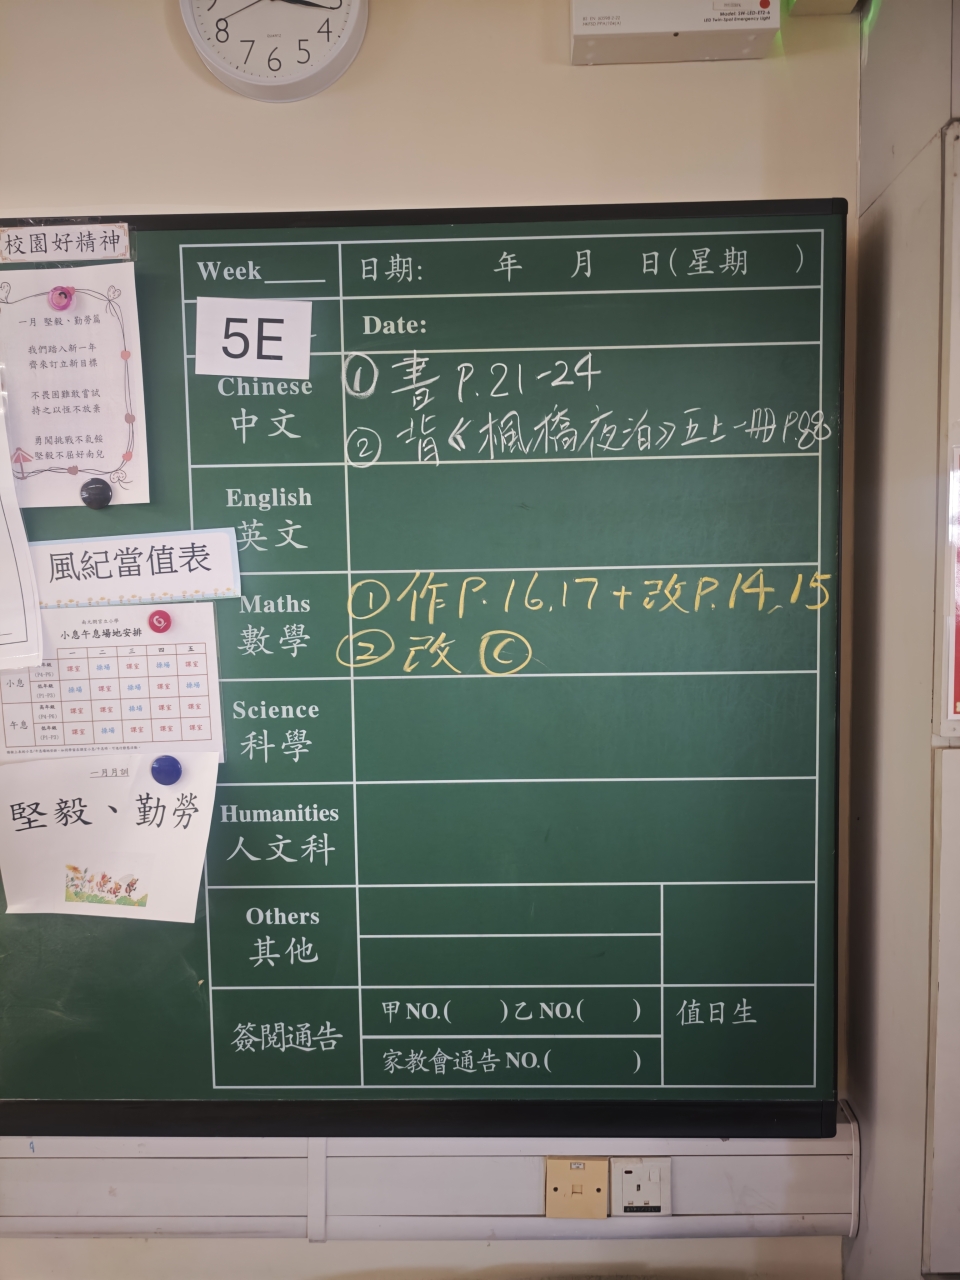 8
7
6
5
4
QUARTZ
Model: SW-LED-ETS-6
LED Twin-Spot Emergency Light
校園好精神
一月 堅毅、勤勞篇
我們踏入新一年
齊來訂立新目標
不畏困難敢嘗試
持之以恆不放棄
勇闖挑戰不氣餒
堅毅不屈好南兒
風紀當值表
小息午息場地安排
一 二 三 四 五
小息
課室 操場 課室 操場 課室
操場 課室 操場 課室 操場
午息
課室 課室 操場 課室 課室
課室 操場 課室 課室 課室
一月月訓
堅毅、勤勞
Week____ 日期: 年 月 日(星期 )
5E
Date:
Chinese
中文
① 書 P.21-24
② 背《楓橋夜泊》五上一冊 P.88
English
英文
Maths
數學
① 作 P.16,17 + 改 P.14、15
② 改 Ⓒ
Science
科學
Humanities
人文科
Others
其他
簽閱通告
甲 NO.( ) 乙 NO.( )
家教會通告 NO.( )
值日生